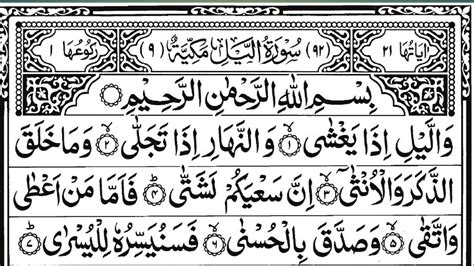 اٰیَاتُهَا ٢١ (٩٢) سُوْرَةُ الَّیْلِ مَكِّیَّةٌ (٩) رُكُوْعُهَا ١
بِسْمِ اللّٰهِ الرَّحْمٰنِ الرَّحِیْمِ
وَالَّیْلِ اِذَا یَغْشٰى ١ وَالنَّهَارِ اِذَا تَجَلّٰى ٢ وَمَا خَلَقَ
الذَّكَرَ وَالْاُنْثٰۤى ٣ اِنَّ سَعْیَكُمْ لَشَتّٰى ٤ فَاَمَّا مَنْ اَعْطٰى
وَاتَّقٰى ٥ وَصَدَّقَ بِالْحُسْنٰى ٦ فَسَنُیَسِّرُهٗ لِلْیُسْرٰى ٧